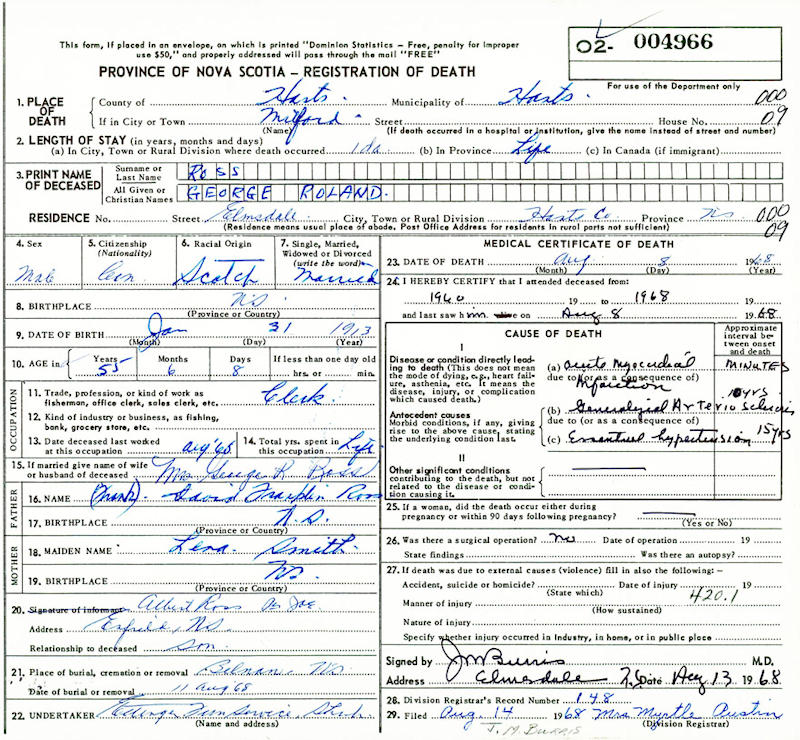 This form, if placed in an envelope, on which is printed "Dominion Statistics – Free, penalty for improper
use $50," and properly addressed will pass through the mail "FREE"
O2- 004966
PROVINCE OF NOVA SCOTIA – REGISTRATION OF DEATH
For use of the Department only
1. PLACE OF DEATH County of Hants. Municipality of Hants. 000
If in City or Town Milford Street House No. 09
(Name) (If death occurred in a hospital or institution, give the name instead of street and number)
2. LENGTH OF STAY (in years, months and days)
(a) In City, Town or Rural Division where death occurred 1 da (b) In Province Life (c) In Canada (if immigrant)
3. PRINT NAME OF DECEASED Surname or Last Name ROSS
All Given or Christian Names GEORGE ROLAND.
RESIDENCE No. Street Elmsdale City, Town or Rural Division Hants Co. Province NS 000
(Residence means usual place of abode. Post Office Address for residents in rural parts not sufficient) 09
4. Sex 5. Citizenship (Nationality) 6. Racial Origin 7. Single, Married, Widowed or Divorced (write the word)
Male Can Scotch Married
8. BIRTHPLACE NS
(Province or Country)
9. DATE OF BIRTH Jan 31 1913
(Month) (Day) (Year)
10. AGE in Years Months Days If less than one day old
55 6 8 hrs. or min.
OCCUPATION
11. Trade, profession, or kind of work as fisherman, office clerk, sales clerk, etc. Clerk
12. Kind of industry or business, as fishing, bank, grocery store, etc.
13. Date deceased last worked at this occupation Aug '68 14. Total yrs. spent in this occupation Life
15. If married give name of wife or husband of deceased Mrs George R Ross
FATHER
16. NAME (Frank). David Franklin Ross
17. BIRTHPLACE N.S.
(Province or Country)
MOTHER
18. MAIDEN NAME Lena. Smith.
19. BIRTHPLACE NS
(Province or Country)
20. Signature of informant Albert Ross
Address Enfield, NS
Relationship to deceased Son
21. Place of burial, cremation or removal NS
Date of burial or removal 11 Aug 68
22. UNDERTAKER Ettinger Fun Service
(Name and address)
MEDICAL CERTIFICATE OF DEATH
23. DATE OF DEATH Aug 8 1968
(Month) (Day) (Year)
24. I HEREBY CERTIFY that I attended deceased from:
1960 19 to 1968 19
and last saw him alive on Aug 8 1968
CAUSE OF DEATH
Approximate interval between onset and death
I
Disease or condition directly leading to death (This does not mean the mode of dying, e.g., heart failure, asthenia, etc. It means the disease, injury, or complication which caused death.)
(a) Acute Myocardial MINUTES
due to (or as a consequence of) Infarction
Antecedent causes
Morbid conditions, if any, giving rise to the above cause, stating the underlying condition last.
(b) Generalized Arteriosclerosis 10 yrs
due to (or as a consequence of)
(c) Essential hypertension 15 yrs
II
Other significant conditions
contributing to the death, but not related to the disease or condition causing it.
25. If a woman, did the death occur either during
pregnancy or within 90 days following pregnancy?
(Yes or No)
26. Was there a surgical operation? No Date of operation 19
State findings Was there an autopsy?
27. If death was due to external causes (violence) fill in also the following:–
Accident, suicide or homicide? Date of injury 19
(State which) 420.1
Manner of injury
(How sustained)
Nature of injury
Specify whether injury occurred in industry, in home, or in public place
Signed by J M Burris M.D.
Address Elmsdale N.S. Date Aug 13 1968
28. Division Registrar's Record Number 148
29. Filed Aug. 14 1968 Mrs Myrtle Austin
J. M. BURRIS (Division Registrar)